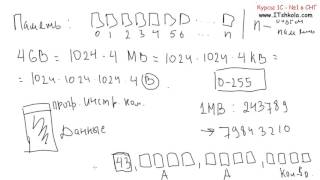 Курсы 1С - №1 в СНГ
www.ITshkola.com
Память:
0 1 2 3 4 5 6 ... n
n -
4GB = 1024 · 4 MB = 1024 · 1024 · 4 kB =
= 1024 · 1024 · 1024 · 4 B
0-255
прог. инстр. ком.
Данные
1MB: 243789
→ 79843210
43, , ,
А Д Кол-во